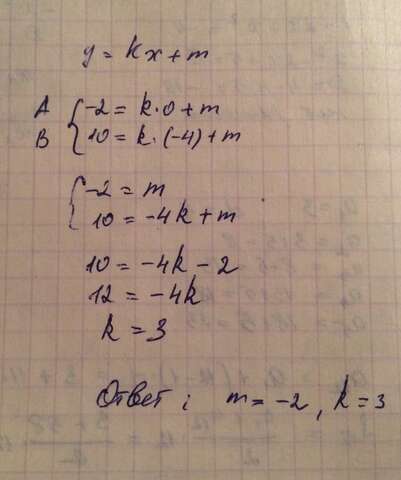 y = kx + m
A { -2 = k·0 + m
B 10 = k·(-4) + m
{ -2 = m
10 = -4k + m
10 = -4k - 2
12 = -4k
k = 3
Ответ: m = -2, k = 3